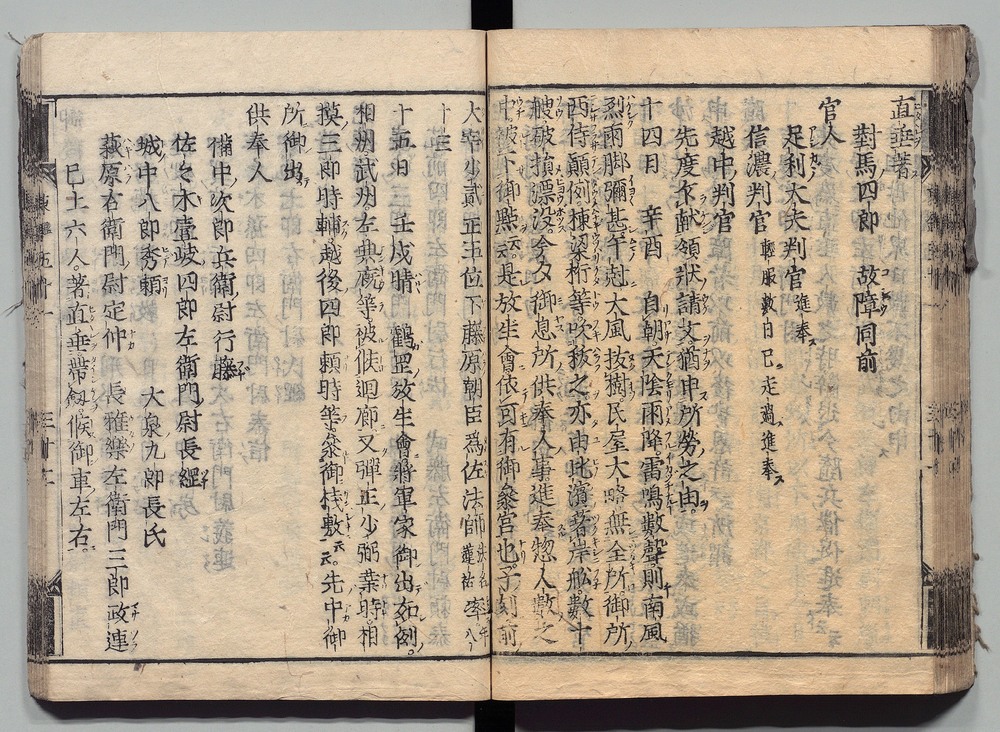 直垂著
對馬四郎 故障同前
官人
足利大夫判官 進奉
信濃判官 輕服數日已走過進奉
越中判官
先度乍献領狀請文猶申所勞之由
十四日 辛酉 自朝天陰雨降雷鳴數聲則南風
烈雨脚彌甚午尅大風拔樹民屋大略無全所御所
西侍顚倒棟梁桁等吹秡之亦由比濱著岸舩數十
艘破損漂没今夕御息所供奉人事進奉惣人數之
中被下御點云云是放生會依可有御參宮也子刻前
大宰少貳正五位下藤原朝臣爲佐法師 法名蓮祐 率年八
十三
十五日 壬戌晴 鶴罡放生會將軍家御出如例
相州武州左典廐等被候廻廊又彈正少弼業時相
摸三郎時輔越後四郎頼時等參御棧敷云云先中御
所御出
供奉人
備中次郎兵衛尉行藤
佐々木壹岐四郎左衛門尉長經
城中八郎秀頼 大泉九郎長氏
荻原右衛門尉定仲 長雅樂左衛門三郎政連
已上六人著直垂帶劔候御車左右